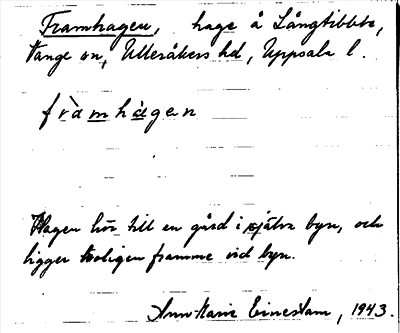 Framhagen, hage å Långtibble,
Vange sn, Ulleråkers hd, Uppsala l.
fràmhàgen
Hagen hör till en gård i själva byn, och
ligger troligen framme vid byn.
Ann Marie Ernestam, 1943.